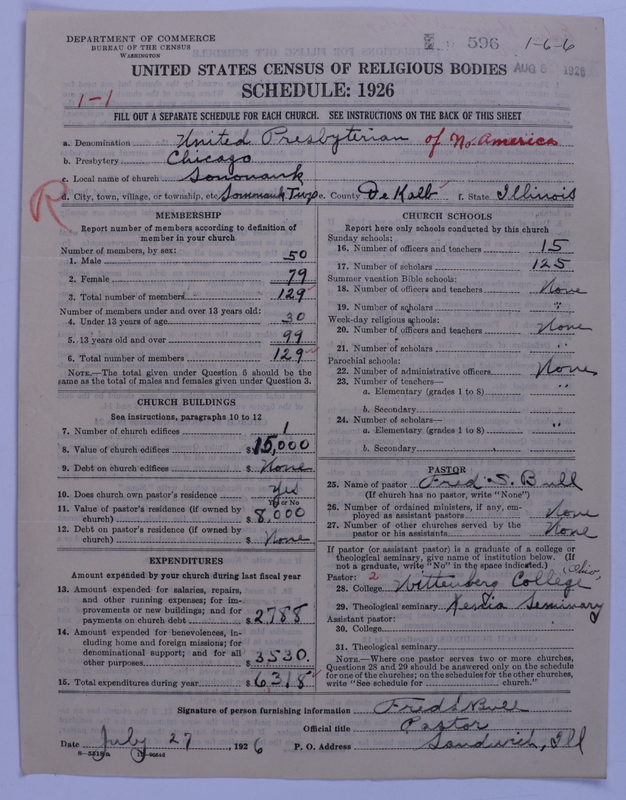 DEPARTMENT OF COMMERCE
BUREAU OF THE CENSUS
WASHINGTON
596 1-6-6
UNITED STATES CENSUS OF RELIGIOUS BODIES
AUG 5 1926
SCHEDULE: 1926
1-1
FILL OUT A SEPARATE SCHEDULE FOR EACH CHURCH. SEE INSTRUCTIONS ON THE BACK OF THIS SHEET
a. Denomination United Presbyterian of No. America
b. Presbytery Chicago
c. Local name of church Somonauk
R
d. City, town, village, or township, etc Somonauk Twp e. County De Kalb f. State Illinois
MEMBERSHIP
Report number of members according to definition of
member in your church
Number of members, by sex:
1. Male 50
2. Female 79
3. Total number of members 129
Number of members under and over 13 years old:
4. Under 13 years of age 30
5. 13 years old and over 99
6. Total number of members 129
NOTE.—The total given under Question 6 should be the
same as the total of males and females given under Question 3.
CHURCH BUILDINGS
See instructions, paragraphs 10 to 12
7. Number of church edifices 1
8. Value of church edifices $ 15,000
9. Debt on church edifices $ None
10. Does church own pastor's residence Yes
Yes or No
11. Value of pastor's residence (if owned by
church) $ 8,000
12. Debt on pastor's residence (if owned by
church) $ None
EXPENDITURES
Amount expended by your church during last fiscal year
13. Amount expended for salaries, repairs,
and other running expenses; for im-
provements or new buildings; and for
payments on church debt $ 2788
14. Amount expended for benevolences, in-
cluding home and foreign missions; for
denominational support; and for all
other purposes $ 3530
15. Total expenditures during year $ 6,318
CHURCH SCHOOLS
Report here only schools conducted by this church
Sunday schools:
16. Number of officers and teachers 15
17. Number of scholars 125
Summer vacation Bible schools:
18. Number of officers and teachers None
19. Number of scholars "
Week-day religious schools:
20. Number of officers and teachers None
21. Number of scholars "
Parochial schools:
22. Number of administrative officers None
23. Number of teachers—
a. Elementary (grades 1 to 8) "
b. Secondary
24. Number of scholars—
a. Elementary (grades 1 to 8) "
b. Secondary
PASTOR
25. Name of pastor Fred S. Bull
(If church has no pastor, write "None")
26. Number of ordained ministers, if any, em-
ployed as assistant pastors None
27. Number of other churches served by the
pastor or his assistants None
If pastor (or assistant pastor) is a graduate of a college or
theological seminary, give name of institution below. (If
not a graduate, write "No" in the space indicated.)
Pastor: 2 Ohio
28. College Wittenberg College
29. Theological seminary Xenia Seminary
Assistant pastor:
30. College
31. Theological seminary
NOTE.—Where one pastor serves two or more churches,
Questions 28 and 29 should be answered only on the schedule
for one of the churches; on the schedules for the other churches,
write "See schedule for church."
Signature of person furnishing information Fred S Bull
Official title Pastor
Date July 27, 1926 P. O. Address Sandwich, Ill